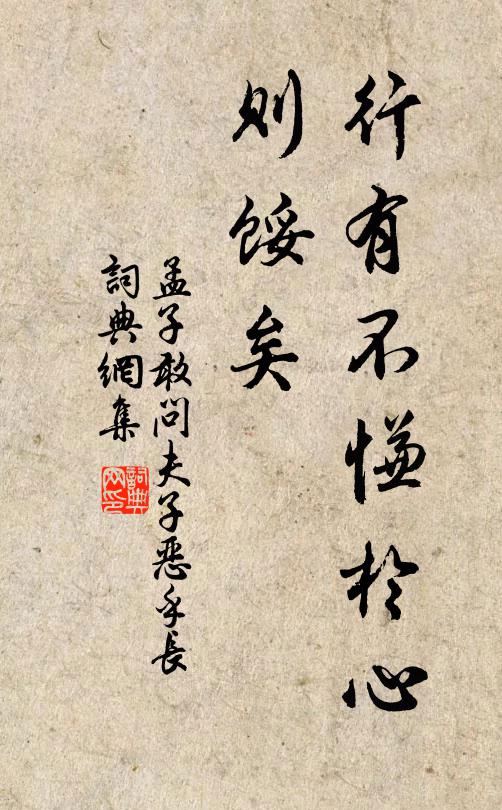 行有不慊於心
則餒矣
孟子敢問夫子惡乎長
詞典網集
詞典
网印